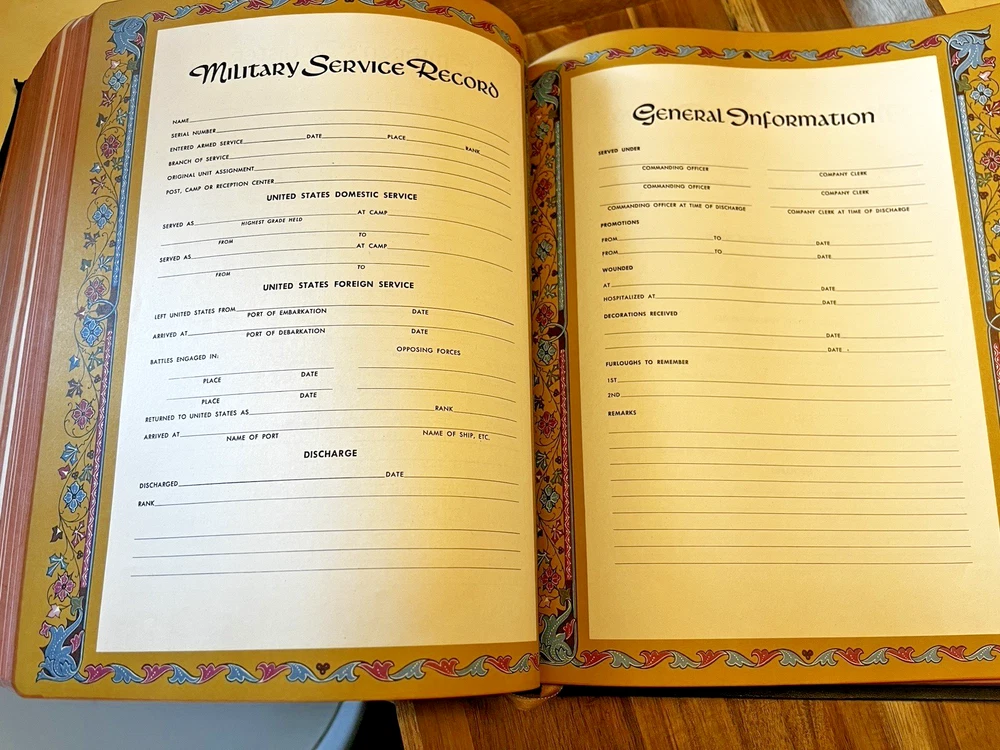 Military Service Record
NAME
SERIAL NUMBER
ENTERED ARMED SERVICE DATE PLACE
BRANCH OF SERVICE RANK
ORIGINAL UNIT ASSIGNMENT
POST, CAMP OR RECEPTION CENTER
UNITED STATES DOMESTIC SERVICE
SERVED AS AT CAMP
HIGHEST GRADE HELD
FROM TO
SERVED AS AT CAMP
FROM TO
UNITED STATES FOREIGN SERVICE
LEFT UNITED STATES FROM
PORT OF EMBARKATION DATE
ARRIVED AT
PORT OF DEBARKATION DATE
BATTLES ENGAGED IN: OPPOSING FORCES
PLACE DATE
PLACE DATE
RETURNED TO UNITED STATES AS RANK
ARRIVED AT
NAME OF PORT NAME OF SHIP, ETC.
DISCHARGE
DISCHARGED DATE
RANK
General Information
SERVED UNDER
COMMANDING OFFICER COMPANY CLERK
COMMANDING OFFICER COMPANY CLERK
COMMANDING OFFICER AT TIME OF DISCHARGE COMPANY CLERK AT TIME OF DISCHARGE
PROMOTIONS
FROM TO DATE
FROM TO DATE
WOUNDED
AT DATE
HOSPITALIZED AT DATE
DECORATIONS RECEIVED
DATE
DATE
FURLOUGHS TO REMEMBER
1ST
2ND
REMARKS